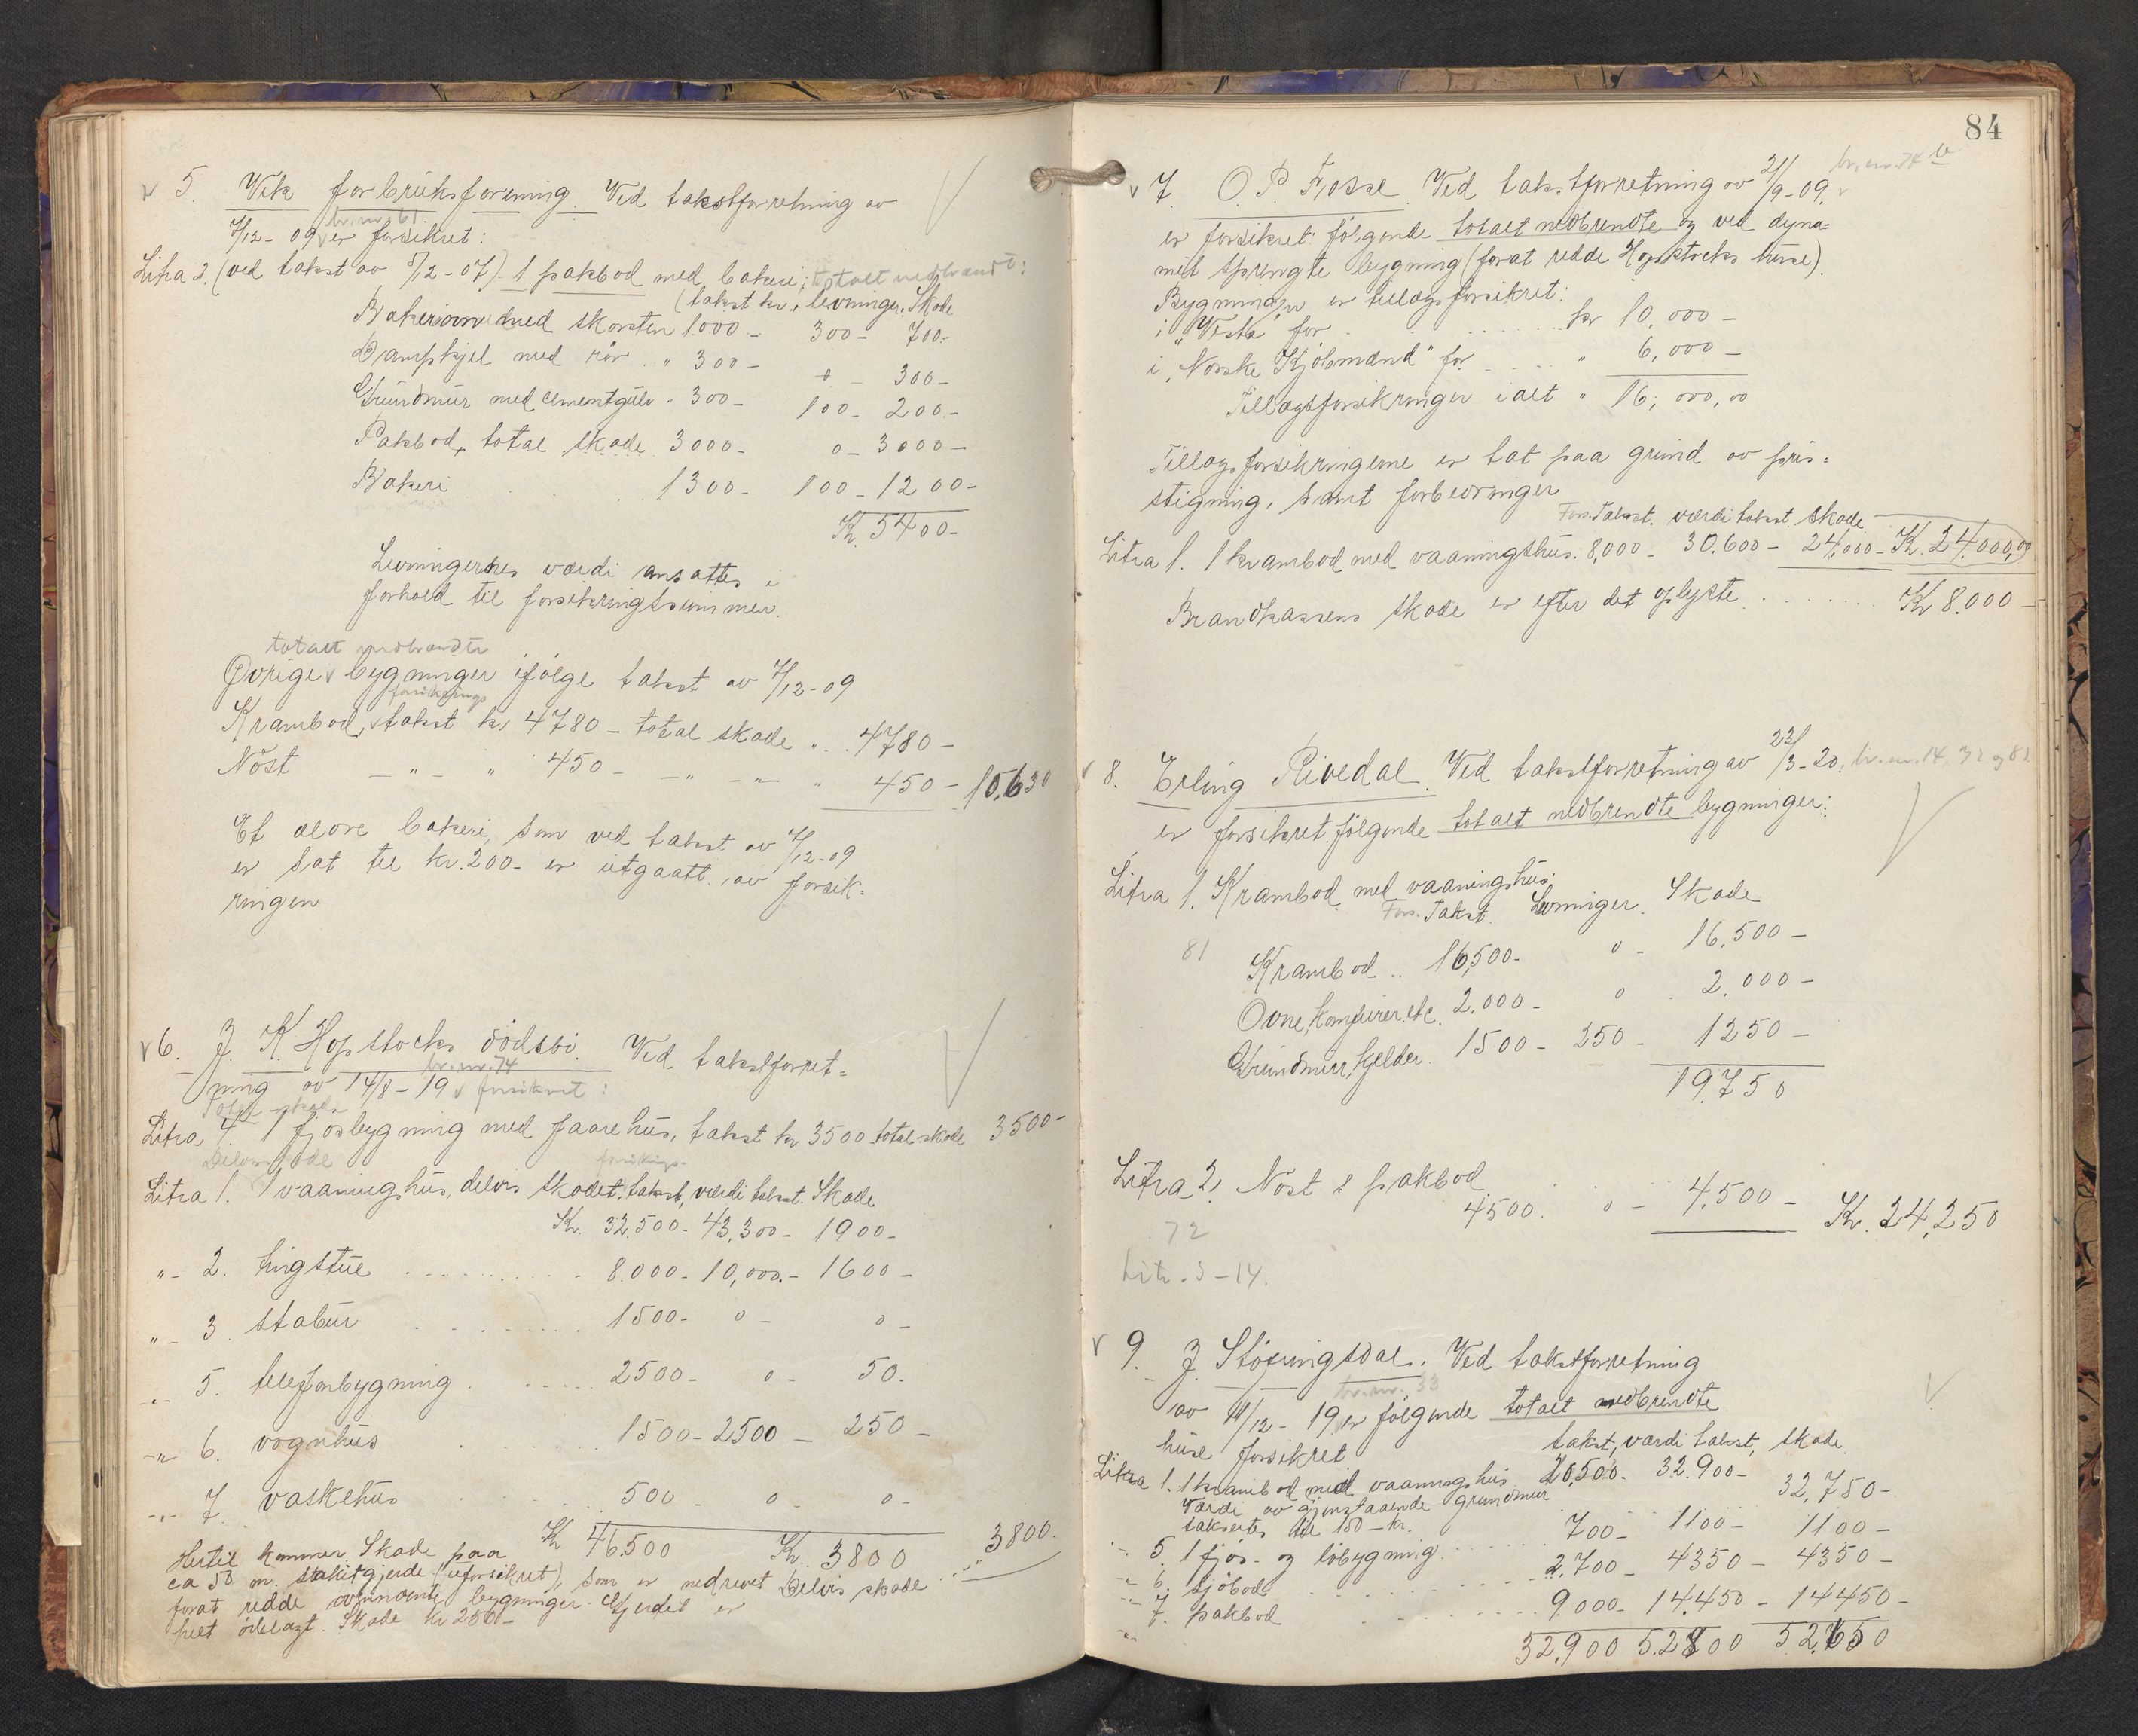 5. Vik forbruksforening. Ved takstforretning av
7/12-09 er forsikret:
br.nr. 61.
Litra 2. (ved takst av 5/12-07). 1 pakbod med bakeri, totalt nedbrændt:
(takst kr, levninger. Skade
Bakeriovn med skorsten 1000- 300- 700-
Dampkjel med rör " 300- 0- 300-
Grundmur med cementgulv " 300- 100- 200-
Pakbod, total skade 3000- 0- 3000-
Bakeri 1300- 100- 1200-
Kr. 5400-
Levningernes værdi ansattes i
forhold til forsikringssummen.
totalt nedbrændte
Øvrige bygninger ifølge takst av 7/12-09
forsikrings
Krambod, takst kr 4780- total skade ". 4780-
Nöst -"- " 450- -"- -"- " 450- 10,630
Et ældre bakeri, som ved takst av 7/12-09
er sat til kr. 200- er utgaatt av forsik-
ringen
6. J. K. Hopstocks dödsbo. Ved takstforret-
br.nr. 74
ning av 14/8-19 forsikret:
Total skade
Litra 4. 1 fjösbygning med faarehus, takst kr 3500 total skade 3500-
Delvis skade
forsikrings-
Litra 1. 1 vaaningshus, delvis skadet: takst, værdi takst. Skade
Kr. 32,500- 43,300- 1900-
"- 2. tingstue 8.000- 10,000.- 1600-
"- 3. stabur 1500- 0- 0-
"- 5. telefonbygning 2500- 0- 50.
-"- 6. vognhus 1500- 2500- 250-
-"- 7. vaskehus 500- 0- 0-
Kr 46.500 Kr. 3800 3800.
Hertil kommer Skade paa
ca 50 m. stakitgjerde (uforsikret), som er nedrevet Delvis skade
forat redde ovennævnte bygninger. Gjerdet er
helt ödelagt. Skade kr 250-
84
7. O. P. Fosse. Ved takstforretning av 21/9-09.
br.nr. 74
er forsikret følgende totalt nedbrendte og ved dyna-
mit sprengte bygning (forat redde Hopstocks huse).
Bygningen er tillægsforsikret:
i "Vesta" for kr 10,000-
i "Norske Kjöbmænd" for " 6,000-
Tillægsforsikringer ialt " 16,000,00
Tillægsforsikringerne er tat paa grund av pris-
stigning, samt forbedringer
Fors. Takst. værdi takst, skade
Litra 1. 1 krambod med vaaningshus. 8,000- 30.600- 24,000- Kr. 24.000,00
Brandkassens skade er efter det oplyste Kr 8.000-
8. Erling Rivedal. Ved takstforretning av 23/3-20, br.nr. 14, 72 og 81
er forsikret følgende totalt nedbrendte bygninger:
Litra 1. Krambod med vaaningshus:
Fors. Takst. Levninger. Skade
81
Krambod 16,500- 0- 16,500-
Ovne, komfurer etc. 2,000- 0 2,000-
Grundmur, kjelder. 1500- 250- 1250-
19,750
Litra 2. Nöst & pakbod
4500. 0- 4,500- Kr. 24,250
72
Litr. 3-14.
9. J. Stösringsdal. Ved takstforretning
br.nr. 33
av 11/12-19 er følgende totalt nedbrendte
huse forsikret takst, værdi takst, skade
Litra 1. 1 krambod med vaaningshus 20,500- 32.900- 32,750-
Værdi av gjenstaaende grundmur
takseres til 150- kr.
"- 5. 1 fjös- og löbygning 700- 1100- 1100-
"- 6. sjöbod 2,700- 4350- 4350-
"- 7. pakbod 9.000- 14,450- 14450-
32,900 52800 52,650